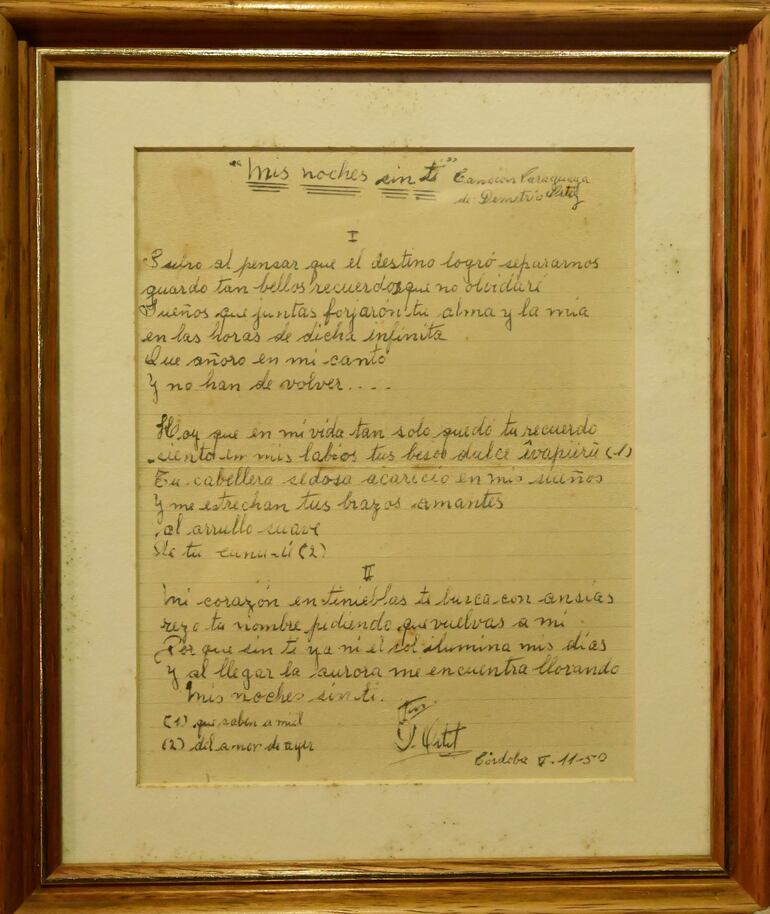 "Mis noches sin ti" Canción Paraguaya
de Demetrio Ortiz
I
Sufro al pensar que el destino logró separarnos
guardo tan bellos recuerdos que no olvidaré
Sueños que juntas forjarón tu alma y la mia
en las horas de dicha infinita
Que añoro en mi canto
Y no han de volver....
Hoy que en mi vida tan solo quedó tu recuerdo
siento en mis labios tus besos dulce (1)
Tu cabellera sedosa acaricio en mis sueños
Y me estrechan tus brazos amantes
al arrullo suave
de tu (2)
II
Mi corazón en tinieblas te busca con ansias
rezo tu nombre pidiendo que vuelvas a mi
Por que sin ti ya ni el sol ilumina mis días
Y al llegar la aurora me encuentra llorando
Mis noches sin ti.
(1) que saben a miel
(2) del amor de ayer
Córdoba 11-50